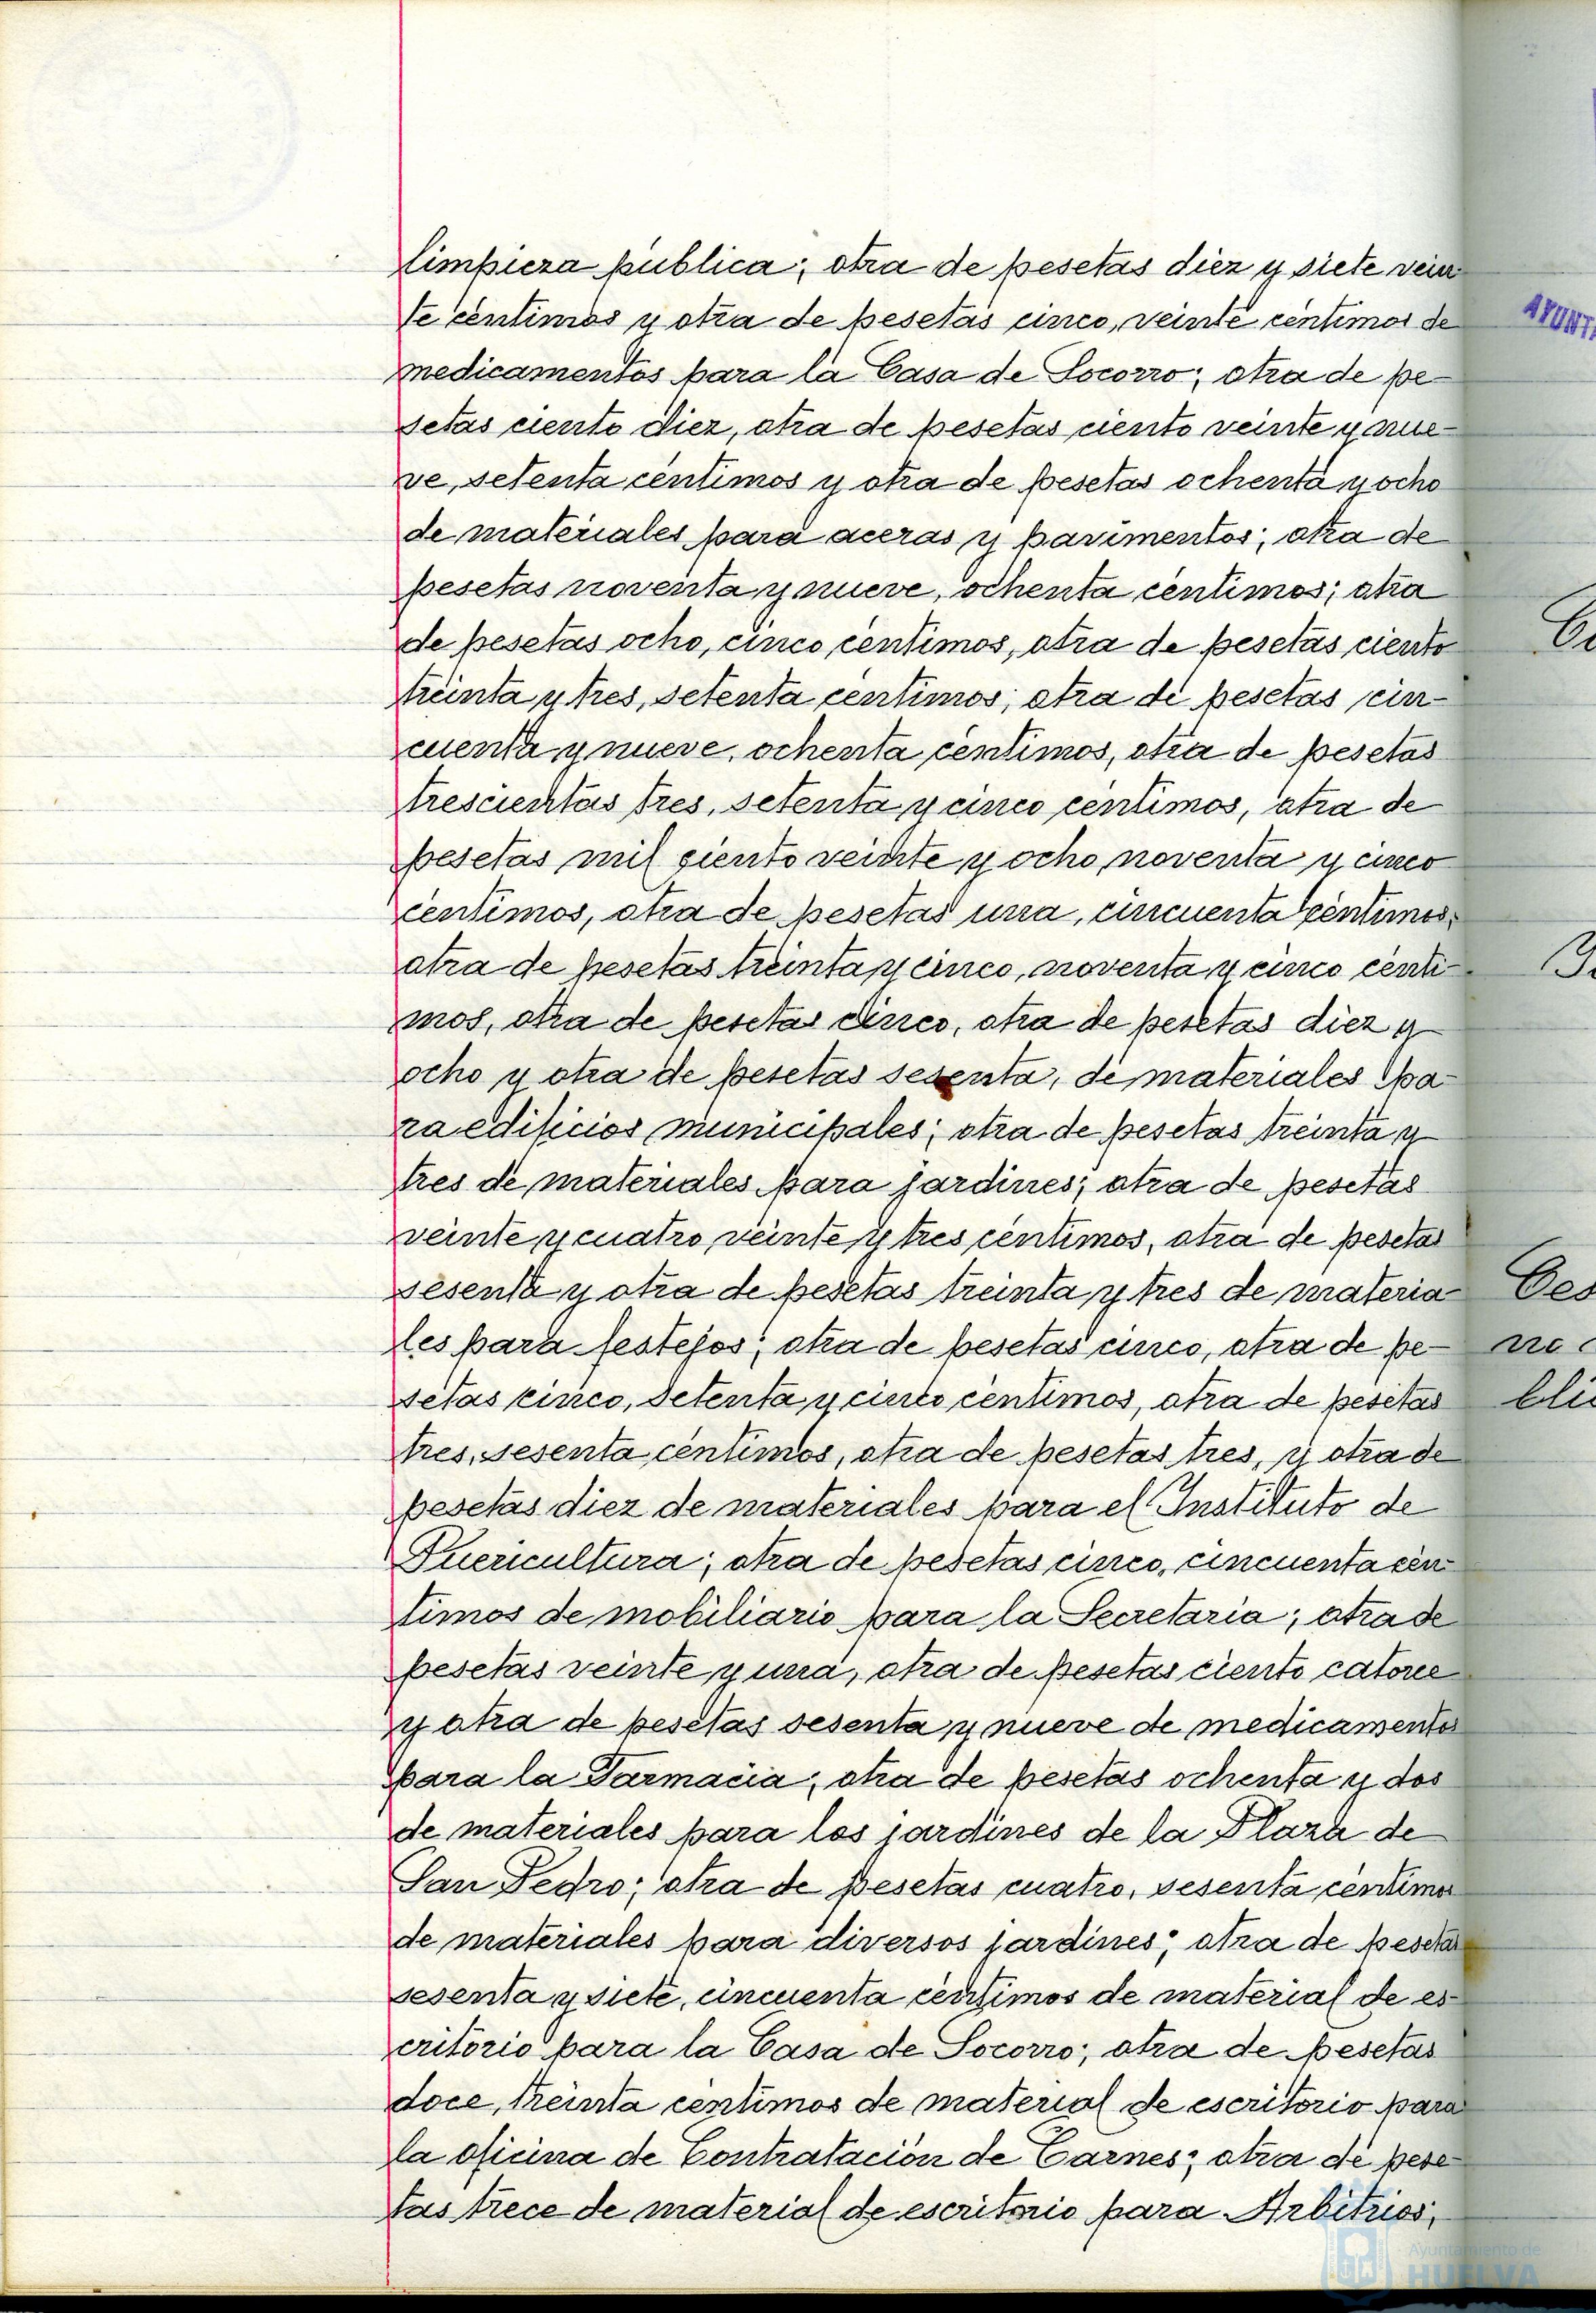 limpieza pública; otra de pesetas diez y siete vein
te céntimos y otra de pesetas cinco, veinte céntimos de
medicamentos para la Casa de Socorro; otra de pe-
setas ciento diez, otra de pesetas ciento veinte y nue-
ve, setenta céntimos y otra de pesetas ochenta y ocho
de materiales para aceras y pavimentos; otra de
pesetas noventa y nueve, ochenta céntimos; otra
de pesetas ocho, cinco céntimos, otra de pesetas ciento
treinta y tres, setenta céntimos; otra de pesetas cin-
cuenta y nueve, ochenta céntimos, otra de pesetas
trescientas tres, setenta y cinco céntimos, otra de
pesetas mil ciento veinte y ocho, noventa y cinco
céntimos, otra de pesetas una, cincuenta céntimos,
otra de pesetas treinta y cinco, noventa y cinco cénti-
mos, otra de pesetas cinco, otra de pesetas diez y
ocho y otra de pesetas sesenta, de materiales pa-
ra edificios municipales; otra de pesetas treinta y
tres de materiales para jardines; otra de pesetas
veinte y cuatro, veinte y tres céntimos, otra de pesetas
sesenta y otra de pesetas treinta y tres de materia-
les para festejos; otra de pesetas cinco, otra de pe-
setas cinco, setenta y cinco céntimos, otra de pesetas
tres, sesenta céntimos, otra de pesetas tres, y otra de
pesetas diez de materiales para el Instituto de
Puericultura; otra de pesetas cinco, cincuenta cén-
timos de mobiliario para la Secretaria; otra de
pesetas veinte y una, otra de pesetas ciento catorce
y otra de pesetas sesenta y nueve de medicamentos
para la Farmacia; otra de pesetas ochenta y dos
de materiales para los jardines de la Plaza de
San Pedro; otra de pesetas cuatro, sesenta céntimos
de materiales para diversos jardines; otra de pesetas
sesenta y siete, cincuenta céntimos de material de es-
critorio para la Casa de Socorro; otra de pesetas
doce, treinta céntimos de material de escritorio para
la oficina de Contratación de Carnes; otra de pese-
tas trece de material de escritorio para Arbitrios,
Ayuntamiento de
HUELVA